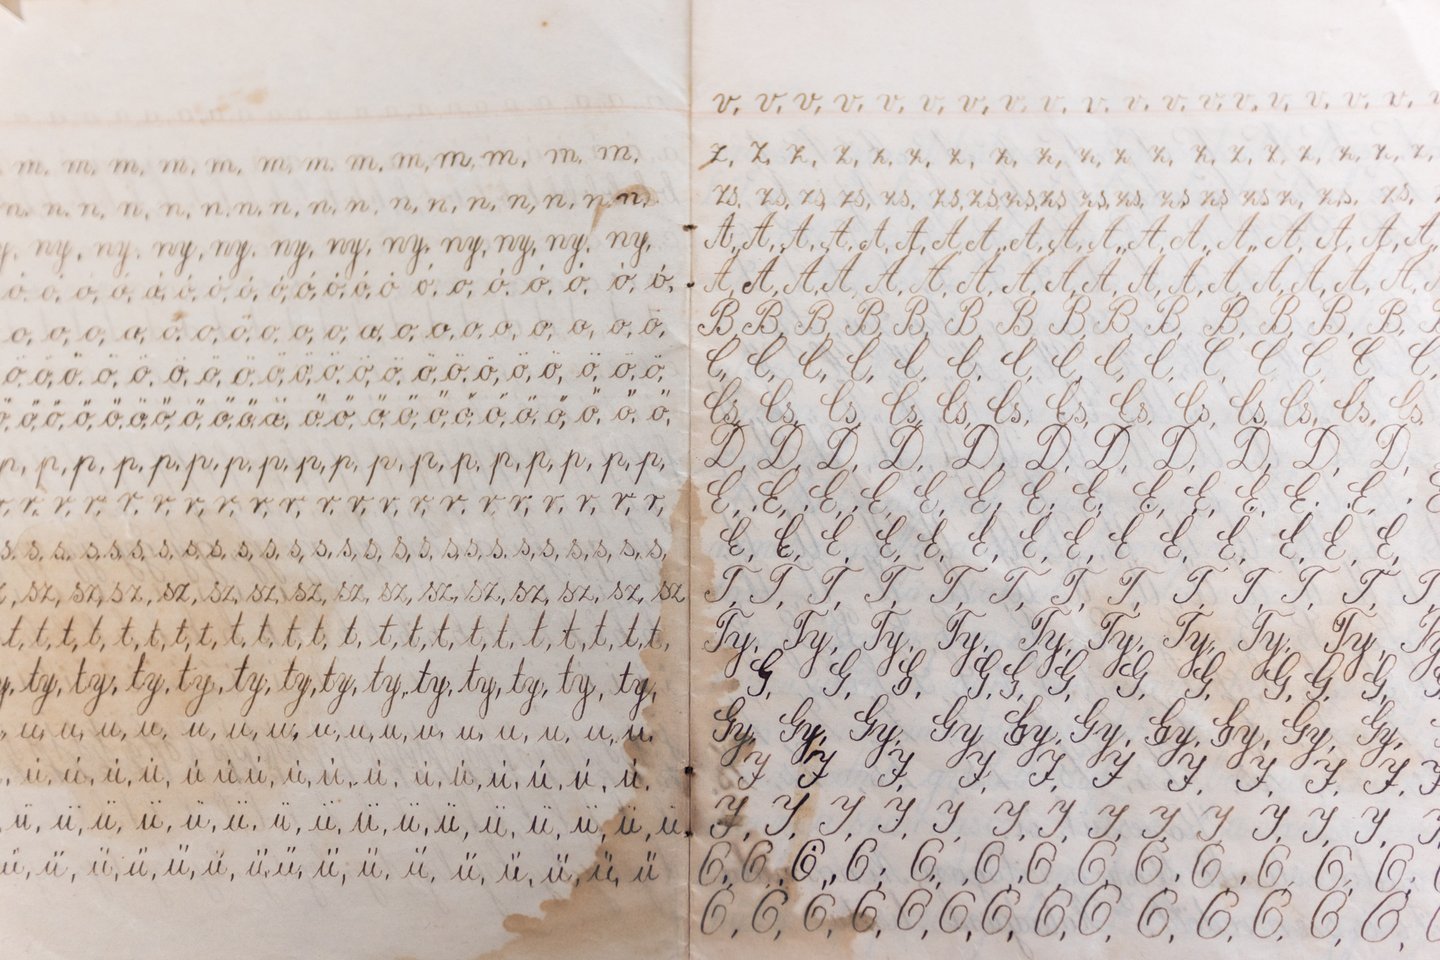 m. m. m. m. m. m. m. m. m, m. m, m. m,
n. n. n, n, n, n, n. n. n, n, n, n, n, n, n, n, n,
ny, ny. ny, ny. ny, ny. ny. ny, ny, ny. ny,
ó, ó, ó, ó, ó, ó, ó, ó, ó, ó, ó, ó, ó ó, ó, ó, ó, ó, ó, ó,
o, o, o, o, o, o, o, o, o, o, o, o, o, o, o, o, o, o, o,
ö, ö, ö, ö, ö, ö, ö, ö, ö, ö, ö, ö, ö, ö, ö, ö, ö, ö, ö, ö, ö,
ő, ő, ő, ő, ő, ő, ő, ő, ő, ő, ő, ő, ő, ő, ő, ő, ő, ő, ő, ő, ő, ő, ő,
p, p, p, p, p, p, p, p, p, p, p, p, p, p, p, p, p, p,
r, r, r, r, r, r, r, r, r, r, r, r, r, r, r, r, r, r, r, r, r,
s, s, s, s, s, s, s, s, s, s, s, s, s, s, s, s, s, s, s, s, s, s, s, s, s, s,
sz, sz, sz, sz, sz, sz, sz, sz, sz, sz, sz, sz, sz, sz, sz
t, t, t, t, t, t, t, t, t, t, t, t, t, t, t, t, t, t, t, t, t, t, t,
ty, ty, ty, ty, ty, ty, ty, ty, ty, ty, ty, ty, ty,
u, u, u, u, u, u, u, u, u, u, u, u, u, u, u, u,
ú, ú, ú, ú, ú, ú, ú, ú, ú, ú, ú, ú, ú, ú, ú, ú,
ü, ü, ü, ü, ü, ü, ü, ü, ü, ü, ü, ü, ü, ü, ü, ü,
ű, ű, ű, ű, ű, ű, ű, ű, ű, ű, ű, ű, ű, ű, ű, ű
v, v, v, v, v, v, v, v, v, v, v, v, v, v, v, v, v, v,
z, z, z, z, z, z, z, z, z, z, z, z, z, z, z, z, z, z,
zs, zs, zs, zs, zs, zs, zs, zs, zs, zs, zs, zs, zs, zs, zs, zs,
A, A, A, A, A, A, A, A, A, A, A, A, A, A, A, A, A, A,
Á, Á, Á, Á, Á, Á, Á, Á, Á, Á, Á, Á, Á, Á, Á, Á,
B, B, B, B, B, B, B, B, B, B, B, B, B, B,
C, C, C, C, C, C, C, C, C, C, C, C, C, C,
Cs, Cs, Cs, Cs, Cs, Cs, Cs, Cs, Cs, Cs, Cs, Cs, Cs,
D, D, D, D, D, D, D, D, D, D, D,
E, E, E, E, E, E, E, E, E, E, E, E, E,
É, É, É, É, É, É, É, É, É, É, É, É, É, É,
T, T, T, T, T, T, T, T, T, T, T, T,
Ty, Ty, Ty, Ty, Ty, Ty, Ty, Ty, Ty,
G, G, G, G, G, G, G, G, G, G, G,
Gy, Gy, Gy, Gy, Gy, Gy, Gy, Gy, Gy, Gy,